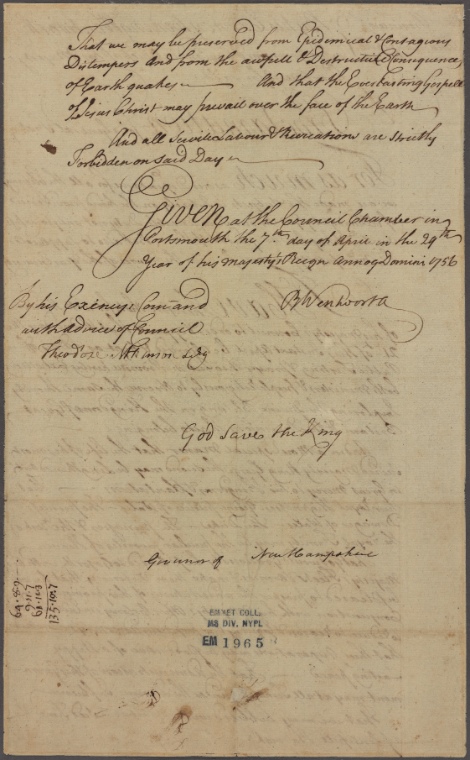 That we may be preserved from Epidemical & Contagious
Distempers And from the awfull & Destructive Consequences
of Earthquakes — And that the Everlasting Gospell
of Jesus Christ may prevail over the face of the Earth
And all Servile Labour & Recreations are strictly
Forbidden on said Day
Given at the Council Chamber in
Portsmouth the 7th day of April in the 29th
Year of his Majestys Reign Annoq Domini 1756
By his Excencys Command
with advice of Council
BWentworth
Theodore Atkinson Secy
God Save the King
Governor of New Hampshire
EMMET COLL.
MS DIV. NYPL
EM 1965